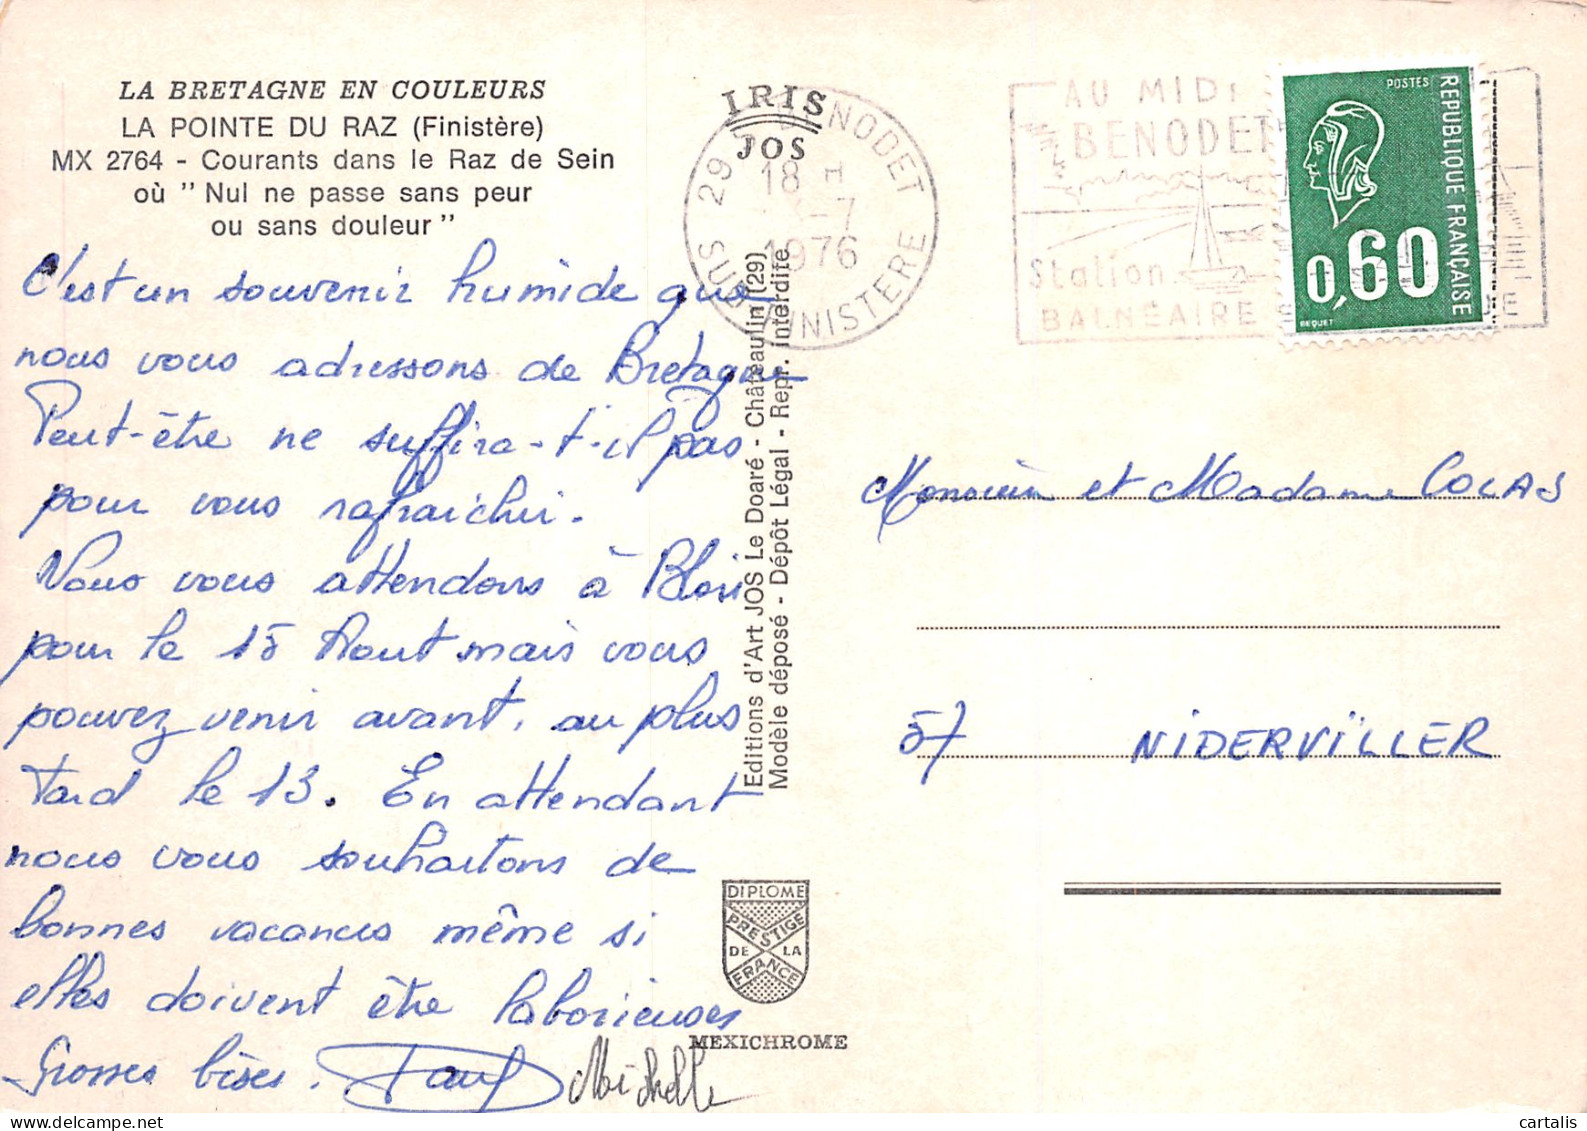 LA BRETAGNE EN COULEURS
LA POINTE DU RAZ (Finistère)
MX 2764 - Courants dans le Raz de Sein
où " Nul ne passe sans peur
ou sans douleur "
C'est un souvenir humide que
nous vous adressons de Bretagne
Peut-être ne suffira-t-il pas
pour vous rafraichir.
Nous vous attendons à Blois
pour le 15 Aout mais vous
pouvez venir avant, au plus
Tard le 13. En attendant
nous vous souhaitons de
bonnes vacances même si
elles doivent être laborieuses
Grosses bises. Paul Michelle
IRIS
JOS
29 BENODET
18 H
-7
1976
SUD-FINISTERE
Editions d'Art JOS Le Doaré - Châteaulin (29)
Modèle déposé - Dépôt Légal - Repr. interdite
DIPLOME
PRESTIGE
DE LA
FRANCE
MEXICHROME
AU MIDI
BENODET
Station
BALNÉAIRE
POSTES
REPUBLIQUE FRANÇAISE
0,60
BEQUET
Monsieur et Madame COLAS
57 NIDERVILLER
cartalis